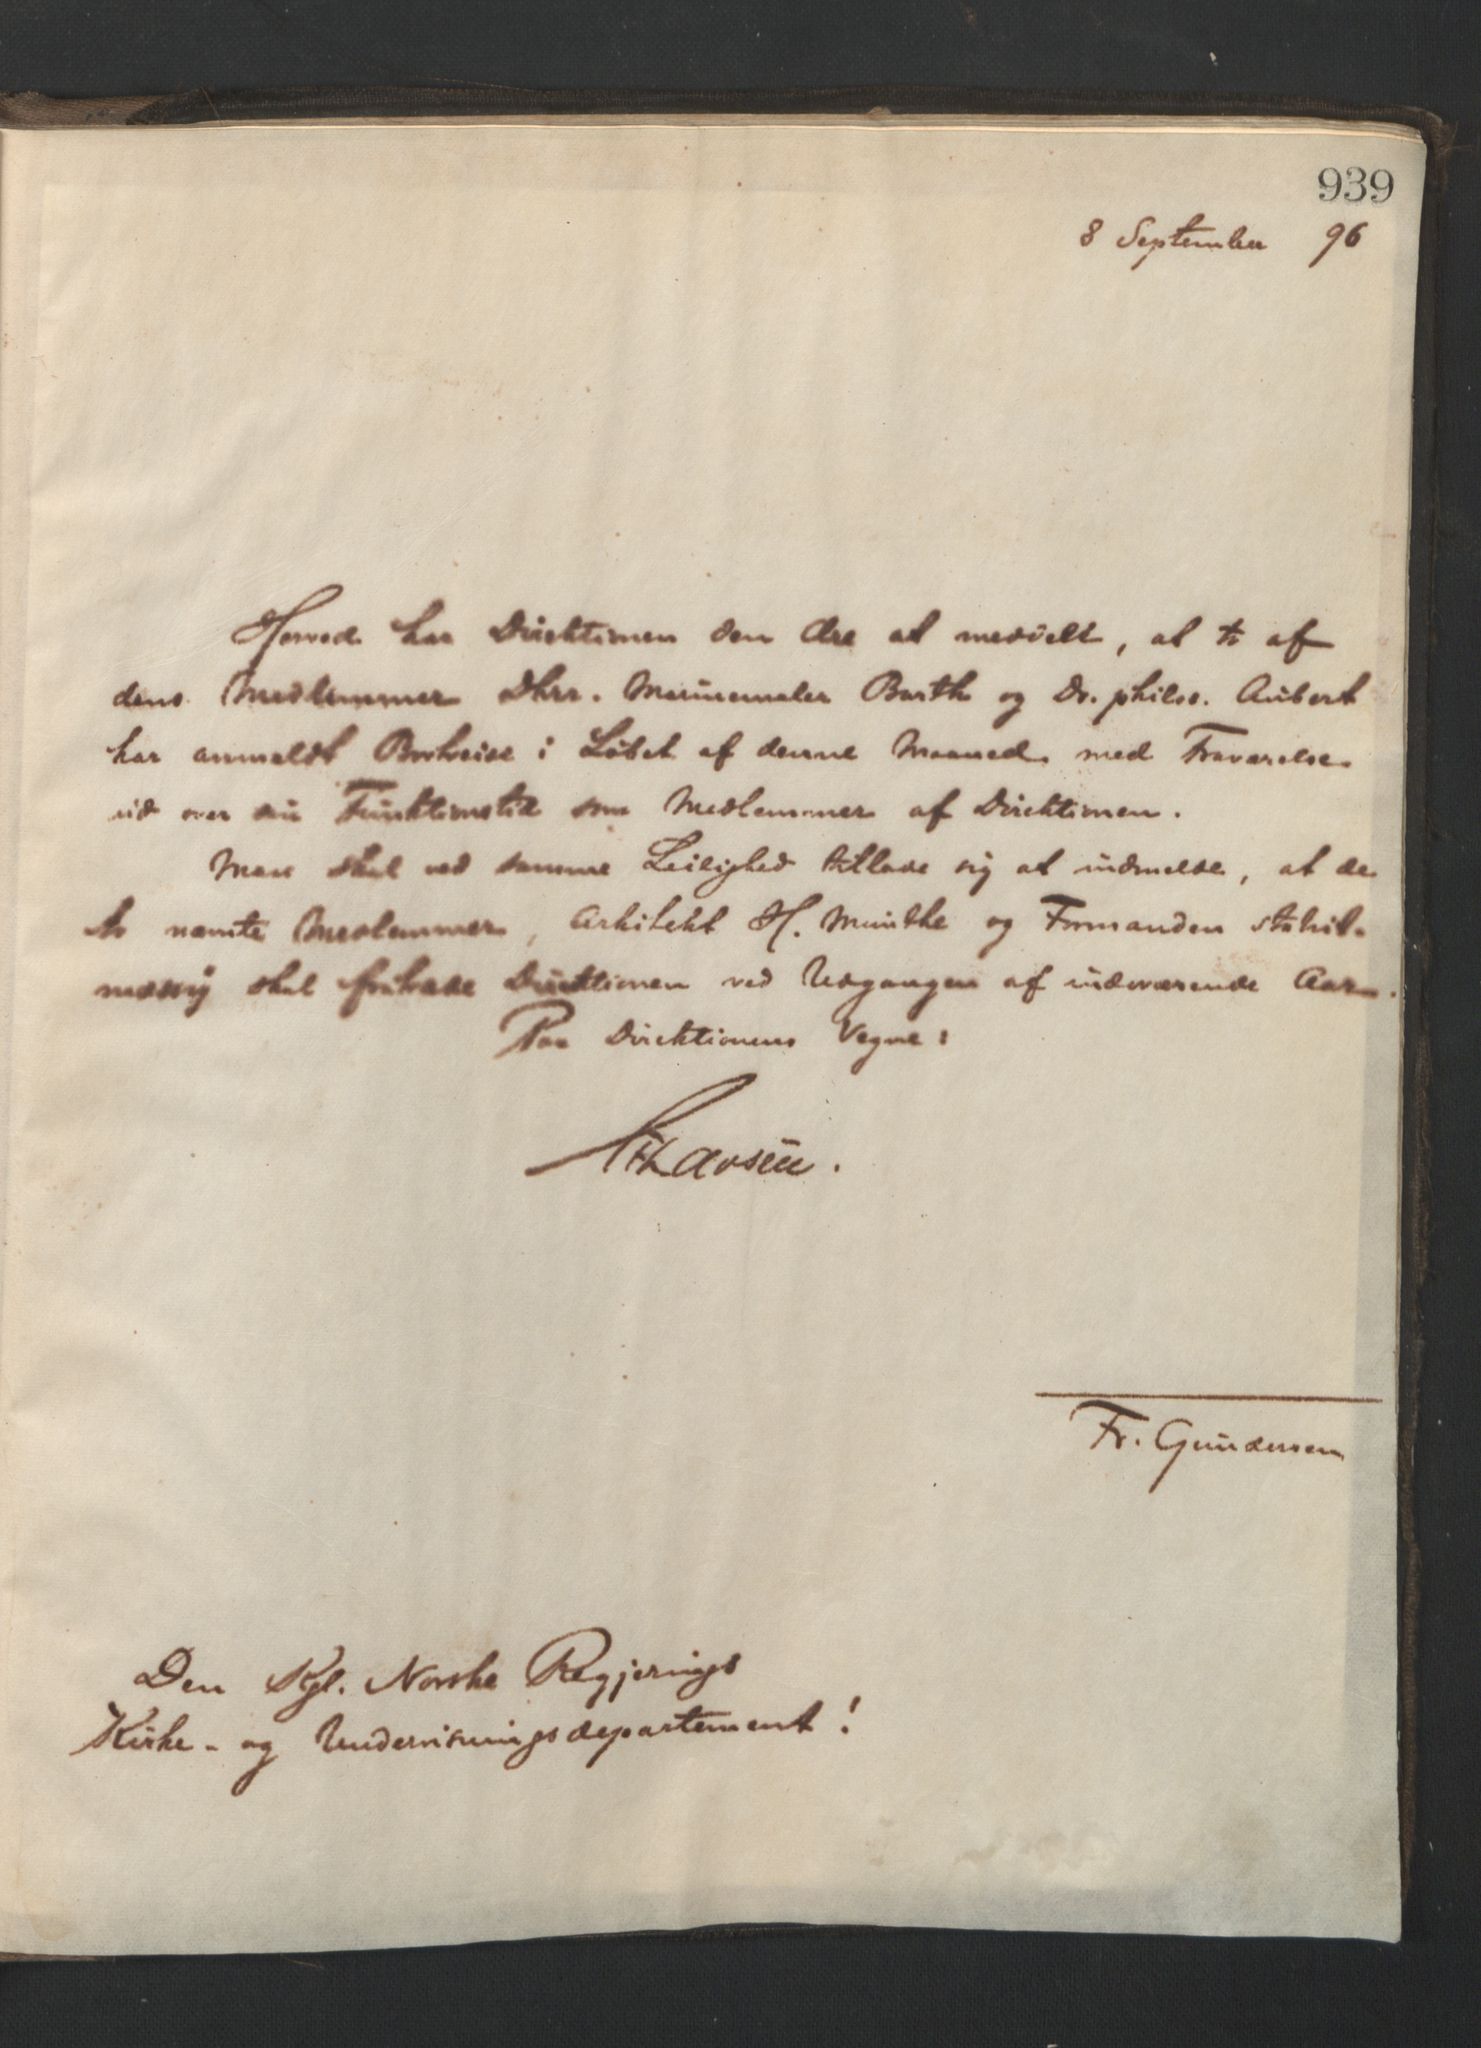 939
8 September 96
Herved har Direktionen den Ære at meddele, at to af
dens Medlemmer Dhrr. Marinemaler Barth og Dr. philos. Aubert
har anmeldt Bortreise i Løbet af denne Maaned med Fraværelse
ud over sin Funktionstid som Medlemmer af Direktionen.
Man skal ved samme Leilighed tillade sig at indmelde, at de
to nævnte Medlemmer, Arkitekt H. Munthe og Formanden
skal fratræde Direktionen ved Udgangen af indeværende Aar.
Paa Direktionens Vegne:
Fr. Gundersen
Den Kgl. Norske Regjerings
Kirke- og Undervisningsdepartement!